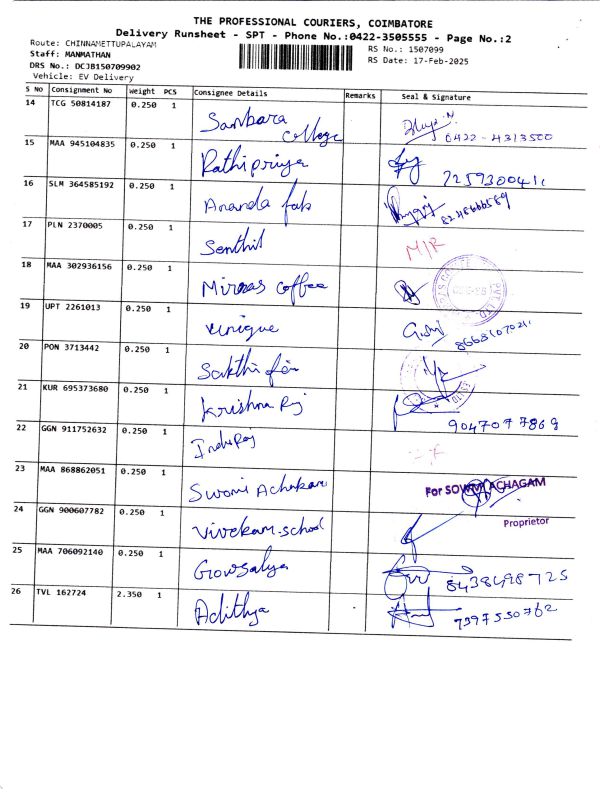 THE PROFESSIONAL COURIERS, COIMBATORE
Delivery Runsheet - SPT - Phone No.:0422-3505555 - Page No.:2
Route: CHINNAMETTUPALAYAM
RS No.: 1507099
Staff: MANMATHAN
RS Date: 17-Feb-2025
DRS No.: DCJB150709902
Vehicle: EV Delivery
S No Consignment No Weight PCS Consignee Details Remarks Seal & Signature
14 TCG 50814187 0.250 1 Sankara college 0422-4313500
15 MAA 945104835 0.250 1 Rathi priya
16 SLM 364585192 0.250 1 Ananda fab
17 PLN 2370005 0.250 1 Senthil M/R
18 MAA 302936156 0.250 1 coffee
19 UPT 2261013 0.250 1 unique
20 PON 3713442 0.250 1 Sakthi
21 KUR 695373680 0.250 1 Krishna Raj 9047077869
22 GGN 911752632 0.250 1 IndhRaj
23 MAA 868862051 0.250 1 Swomi Achakam For ACHAGAM
24 GGN 900607782 0.250 1 Vivekam-school Proprietor
25 MAA 706092140 0.250 1 Gowsalya 8438498725
26 TVL 162724 2.350 1 Adithya 7397550762